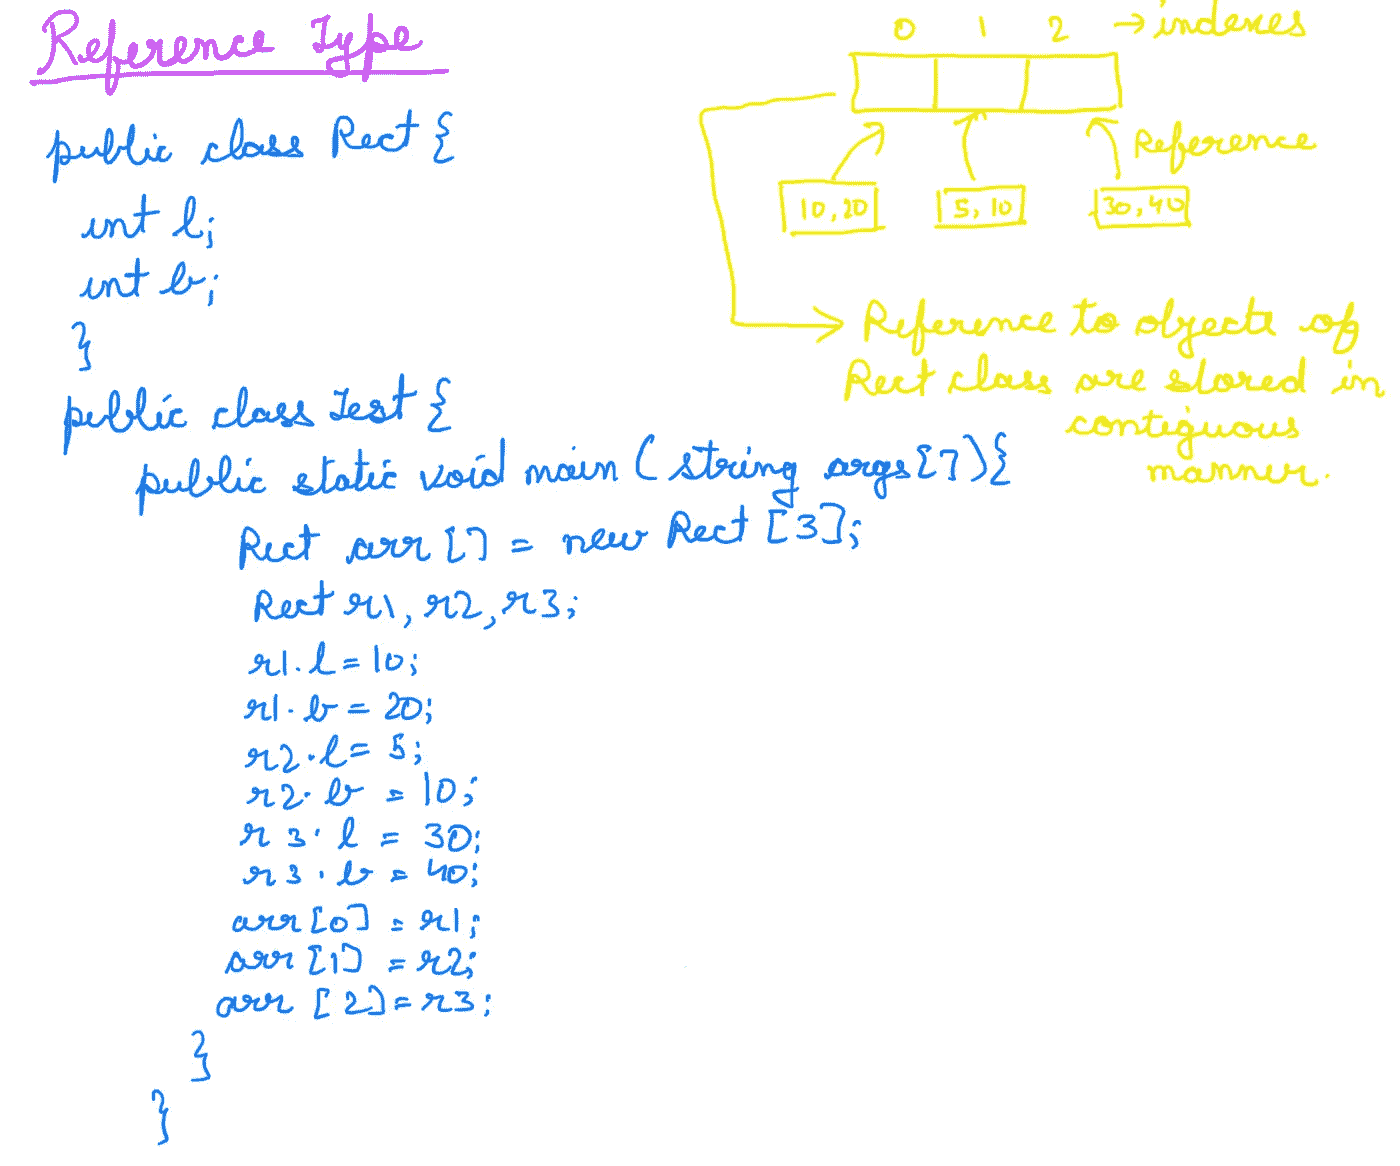 Reference Type
public class Rect {
int l;
int b;
}
public class Test {
public static void main (string args[]){
Rect arr [] = new Rect [3];
Rect r1, r2, r3;
r1.l = 10;
r1.b = 20;
r2.l = 5;
r2.b = 10;
r3.l = 30;
r3.b = 40;
arr [0] = r1;
arr [1] = r2;
arr [2] = r3;
}
}
0 1 2 → indexes
Reference
10, 20 5, 10 30, 40
Reference to objects of
Rect class are stored in
contiguous
manner.